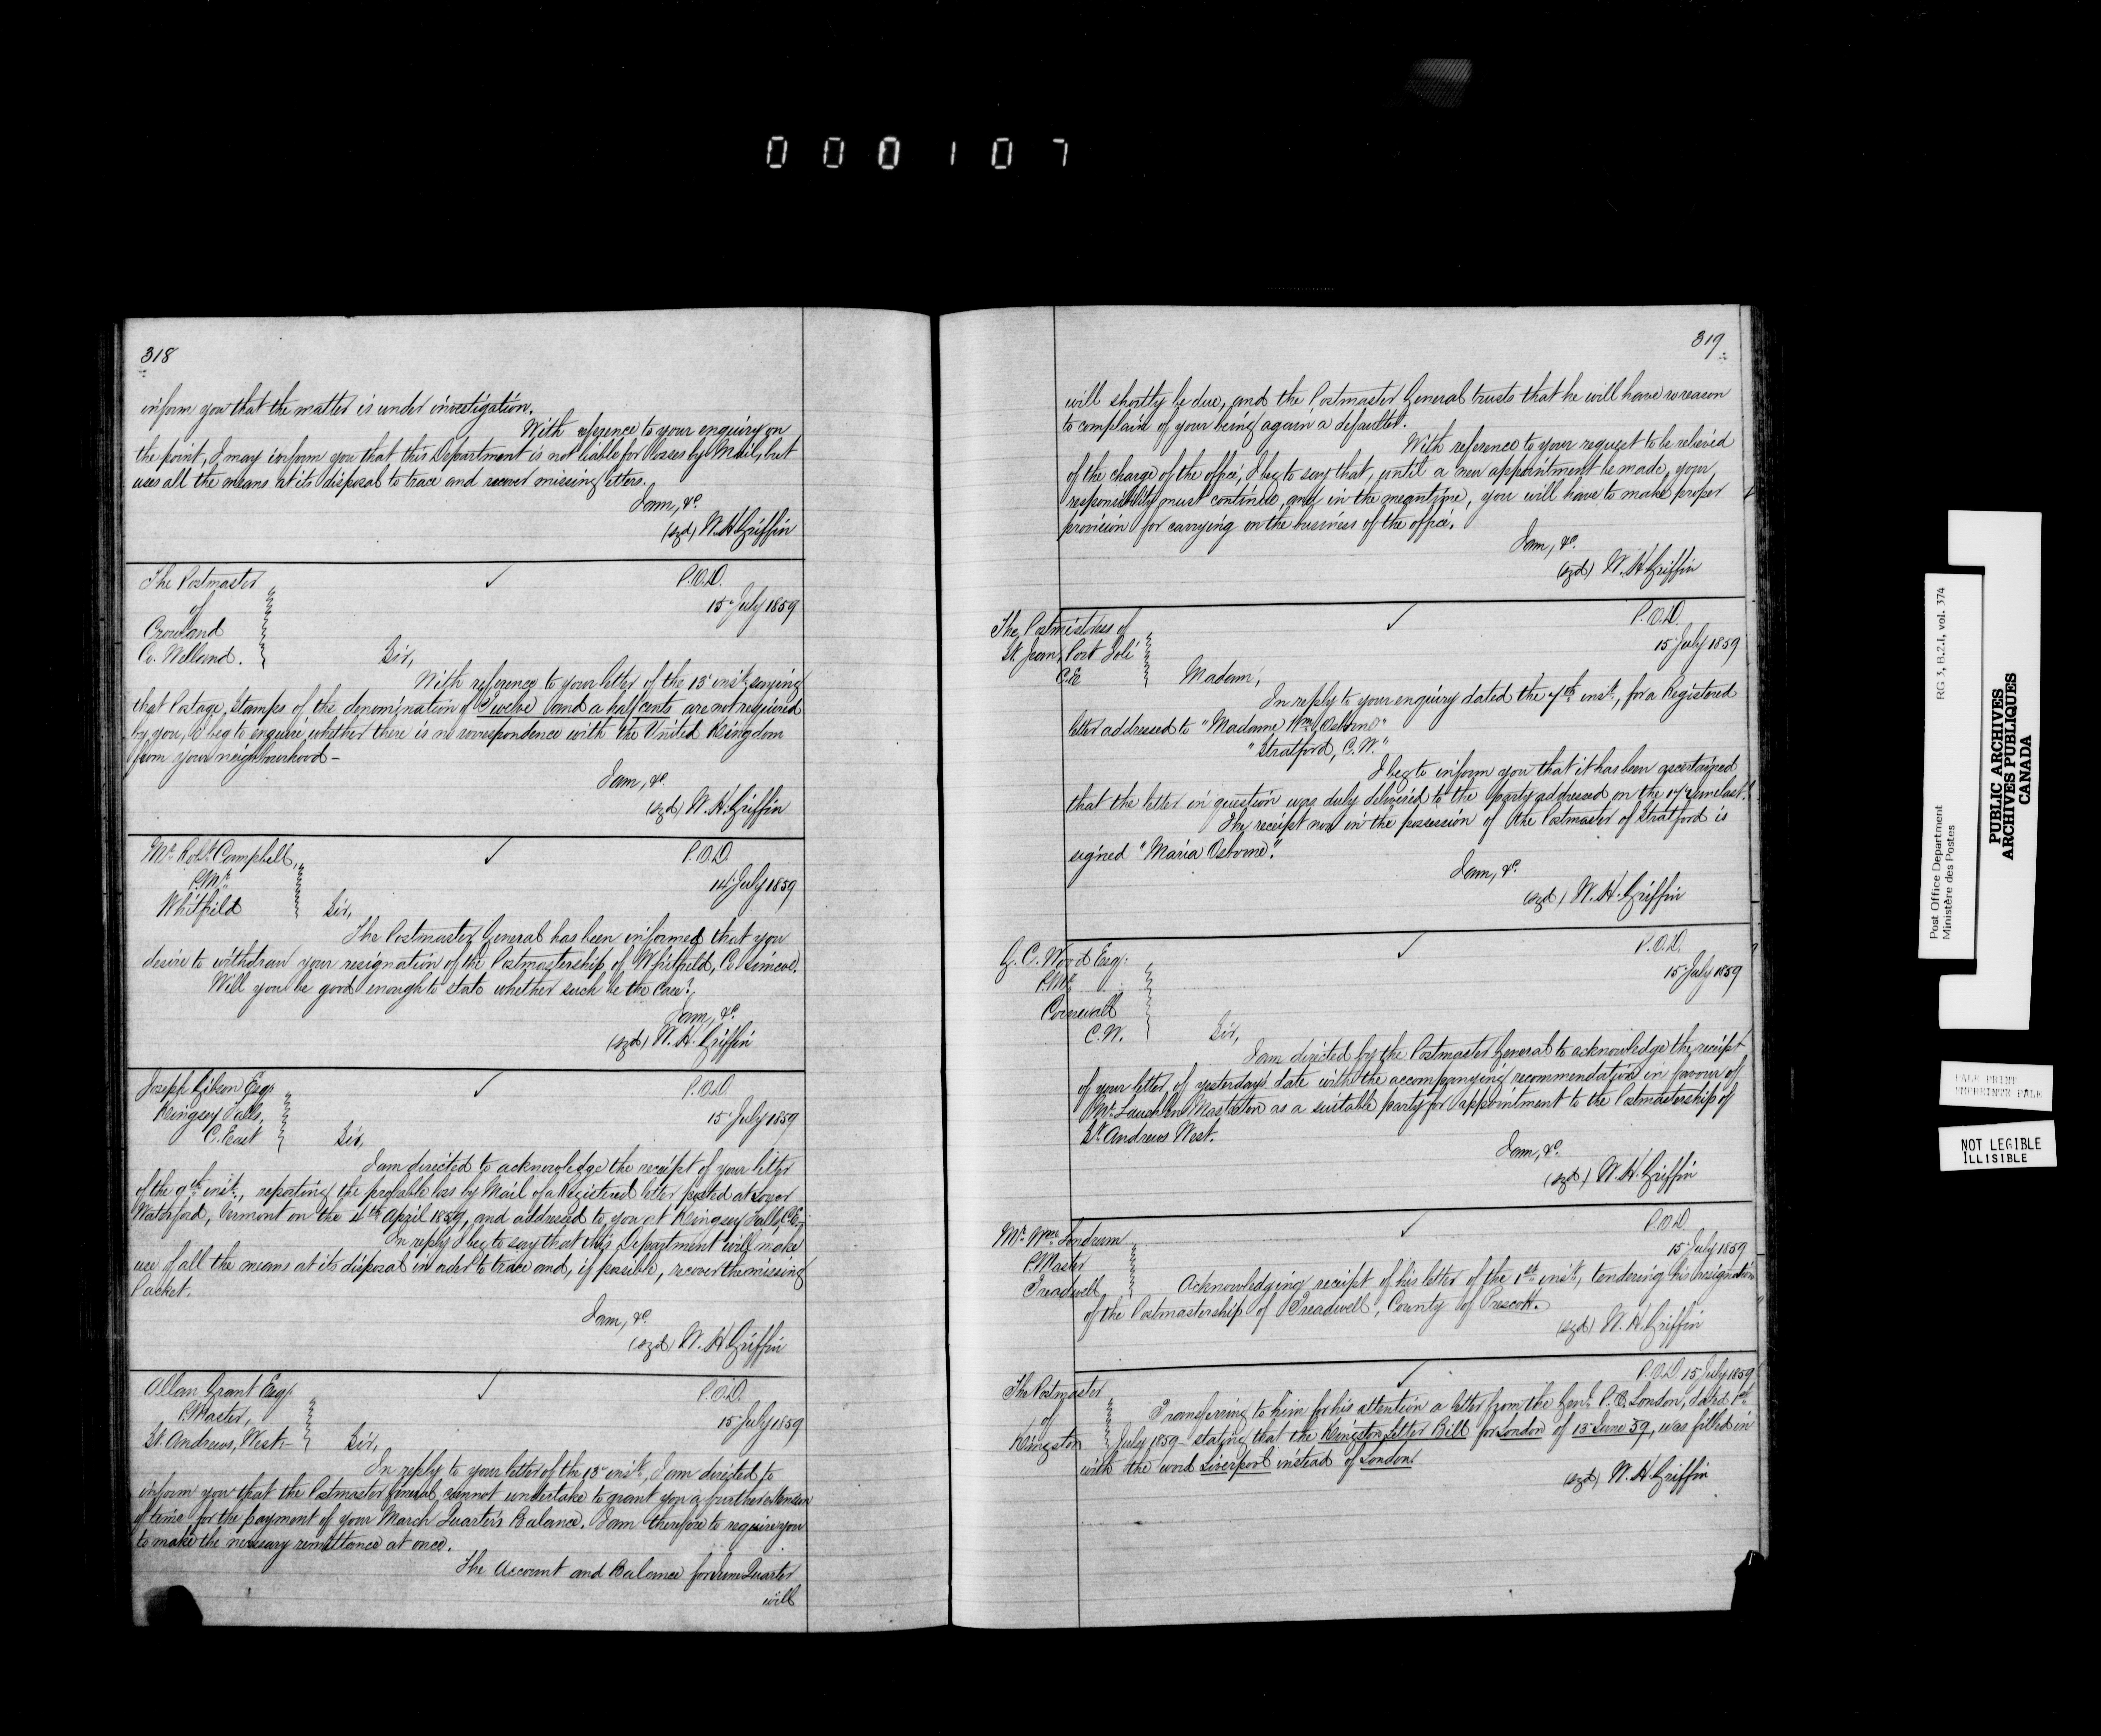 000107
318
inform you that the matter is under investigation.
With refrence to your enquiry on
the point, I may inform you that this Department is not liable for losses by Mail, but
uses all the means at its disposal to trace and recover missing letters.
I am, &c.
(sgd) W. H. Griffin
The Postmaster
of
Crowland
Co. Welland.
P.O.D.
15 July 1859
Sir,
With reference to your letter of the 13 inst, saying
that Postage Stamps of the denomination of Twelve and a half cents are not required
by you, I beg to enquire whether there is no correspondence with the United Kingdom
from your neighbourhood –
I am, &c.
(sgd) W. H. Griffin
Mr. Robt. Campbell,
P.Mr.
Whitfield
P.O.D.
14 July 1859
Sir,
The Postmaster General has been informed that you
desire to withdraw your resignation of the Postmastership of Whitfield, Co. Simcoe.
Will you be good enough to state whether such be the case?
I am, &c.
(sgd) W. H. Griffin
Joseph Gibson Esq.
Kingsey Falls,
C. East
P.O.D
15 July 1859
Sir,
I am directed to acknowledge the receipt of your letter
of the 9th inst., reporting the probable loss by Mail of a Registered letter posted at Lower
Waterford, Vermont on the 4th April 1859, and addressed to you at Kingsey Falls, C.E.
In reply I beg to say that this Department will make
use of all the means at its disposal in order to trace and, if possible, recover the missing
Packet.
I am, &c.
(sgd) W. H. Griffin
Allan Grant Esq.
P.Master,
St. Andrews, West –
P.O.D.
15 July 1859
Sir,
In reply to your letter of the 13 inst., I am directed to
inform you that the Postmaster General cannot undertake to grant you a further extension
of time for the payment of your March Quarter's Balance. I am therefore to require you
to make the necessary remittance at once.
The Account and Balance for June Quarter
will
319
will shortly be due, and the Postmaster General trusts that he will have no reason
to complain of your being again a defaulter.
With reference to your request to be relieved
of the charge of the office, I beg to say that, until a new appointment be made, your
responsibility must continue, and in the meantime, you will have to make proper
provision for carrying on the business of the office.
I am, &c.
(sgd) W. H. Griffin
The Postmistress of
St. Jean, Port Joli
C.E
P.O.D.
15 July 1859
Madam,
In reply to your enquiry dated the 7th inst., for a Registered
letter addressed to "Madame Wm. Osborne"
"Stratford, C.W."
I beg to inform you that it has been ascertained
that the letter in question was duly delivered to the party addressed on the 17 June last.
The receipt now in the possession of the Postmaster of Stratford is
signed "Maria Osborne".
I am, &c.
(sgd) W. H. Griffin
G. C. Wood Esq.
P.Mr.
Cornwall
C.W.
P.O.D.
15 July 1859
Sir,
I am directed by the Postmaster General to acknowledge the receipt
of your letter of yesterday's date with the accompanying recommendation in favour of
Mr. Lauchlen as a suitable party for appointment to the Postmastership of
St. Andrews West.
I am, &c.
(sgd) W. H. Griffin
Mr. Wm. Landrum
P.Master
Treadwell,
P.O.D.
15 July 1859
Acknowledging receipt of his letter of the 1st inst, tendering his resignation
of the Postmastership of Treadwell, County of Prescott.
(sgd) W. H. Griffin
The Postmaster
of
Kingston
P.O.D. 15 July 1859
Transferring to him for his attention a letter from the Genl. P.O. London, dated 1st
July 1859 – stating that the Kingston Letter Bill for London of 13 June 59, was filled in
with the word Liverpool instead of London.
(sgd) W. H. Griffin
Post Office Department
Ministère des Postes
RG 3, B.2.1, vol. 374
PUBLIC ARCHIVES
ARCHIVES PUBLIQUES
CANADA
PALE PRINT
EMPREINTE PALE
NOT LEGIBLE
ILLISIBLE